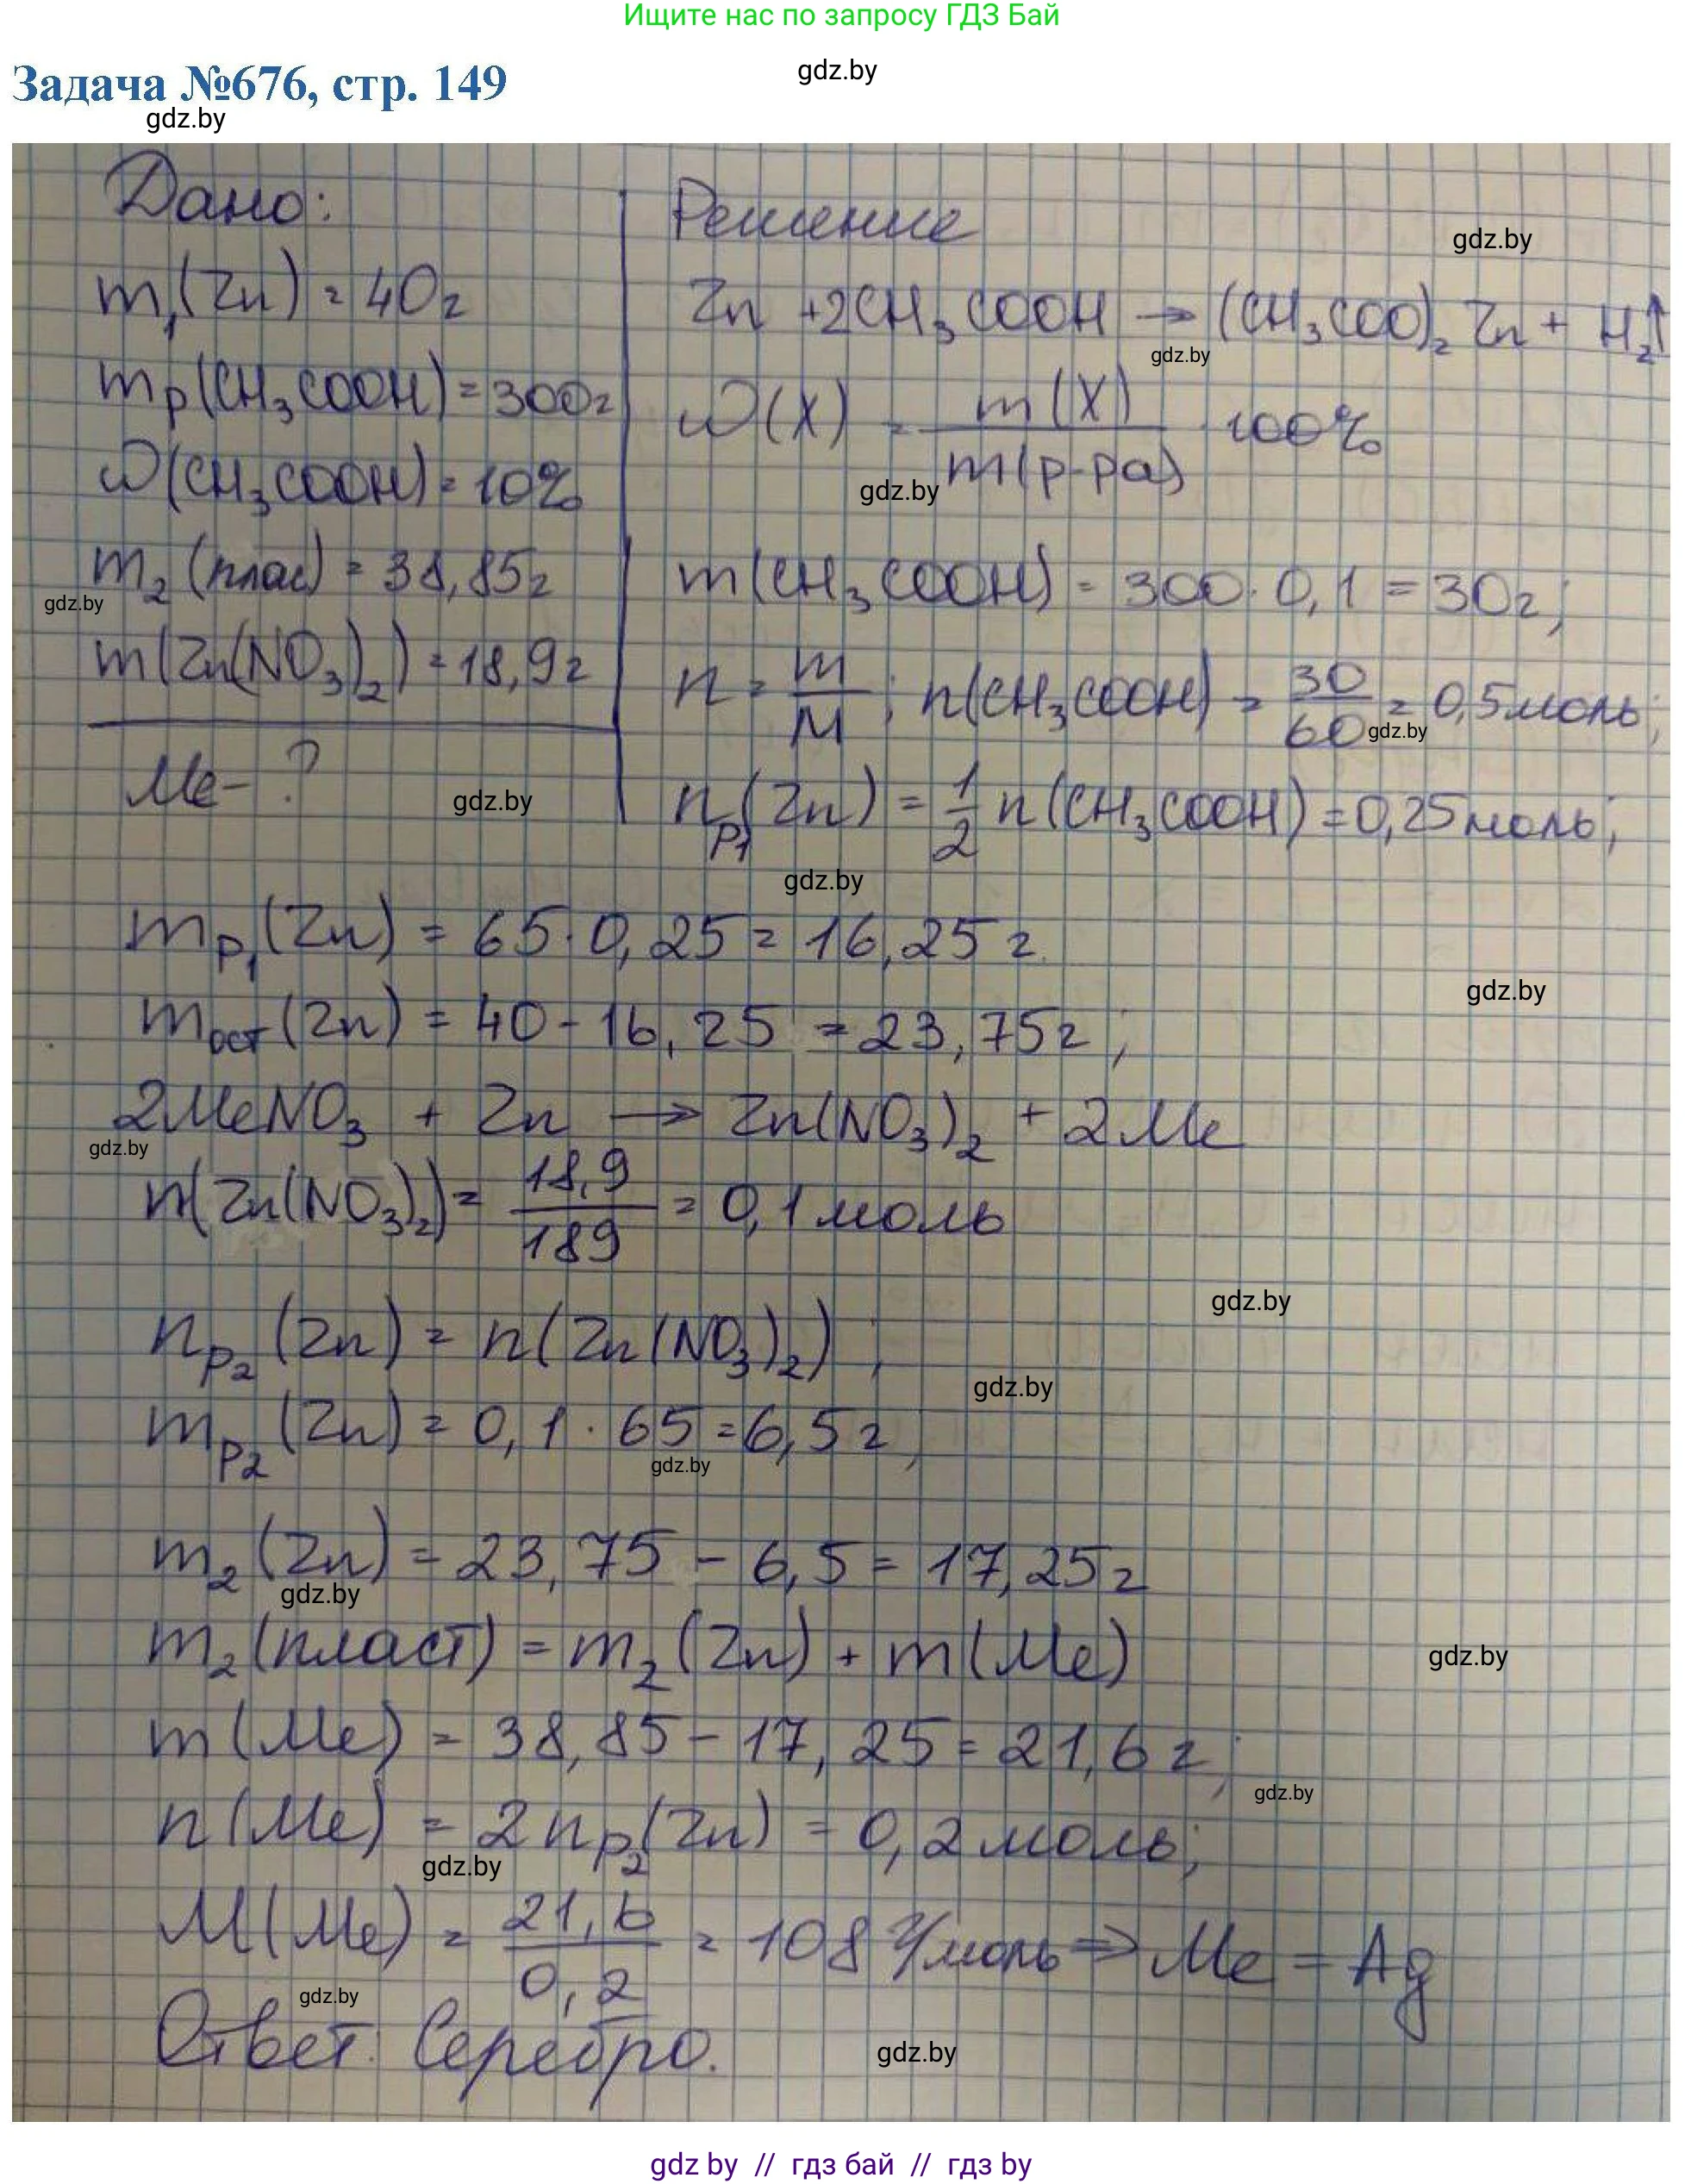 Ищите нас по запросу ГДЗ Бай
gdz.by
Задача №676, стр. 149
gdz.by
Дано:
m₁(Zn) = 40г
mр(CH₃COOH) = 300г
ω(CH₃COOH) = 10%
m₂(плас) = 38,85г
gdz.by
m(Zn(NO₃)₂) = 18,9г
Me - ?
gdz.by
Решение
gdz.by
Zn + 2CH₃COOH → (CH₃COO)₂Zn + H₂↑
gdz.by
ω(X) = m(X) / m(р-ра) · 100%
gdz.by
m(CH₃COOH) = 300 · 0,1 = 30г;
n = m/M; n(CH₃COOH) = 30/60 = 0,5 моль;
gdz.by
nр₁(Zn) = 1/2 n(CH₃COOH) = 0,25 моль;
gdz.by
mр₁(Zn) = 65 · 0,25 = 16,25г
gdz.by
mост(Zn) = 40 - 16,25 = 23,75г;
2MeNO₃ + Zn → Zn(NO₃)₂ + 2Me
gdz.by
n(Zn(NO₃)₂) = 18,9/189 = 0,1 моль
gdz.by
nр₂(Zn) = n(Zn(NO₃)₂);
gdz.by
mр₂(Zn) = 0,1 · 65 = 6,5г;
gdz.by
m₂(Zn) = 23,75 - 6,5 = 17,25г
gdz.by
m₂(пласт) = m₂(Zn) + m(Me)
gdz.by
m(Me) = 38,85 - 17,25 = 21,6г;
gdz.by
n(Me) = 2nр₂(Zn) = 0,2 моль;
gdz.by
M(Me) = 21,6/0,2 = 108 г/моль ⇒ Me - Ag
gdz.by
Ответ: Серебро.
gdz.by
gdz by // гдз бай // гдз by